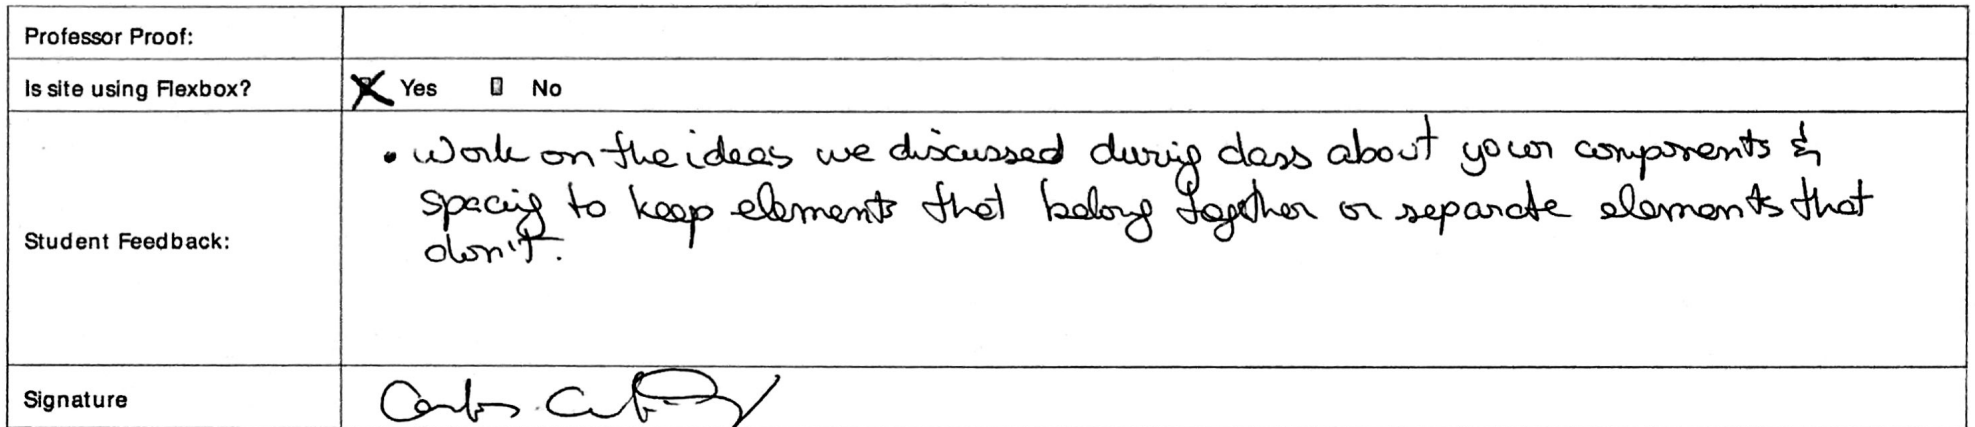 Professor Proof:
Is site using Flexbox? Yes No
• Work on the ideas we discussed during class about your components &
spacing to keep elements that belong together or separate elements that
Student Feedback:
don't.
Signature Carlos